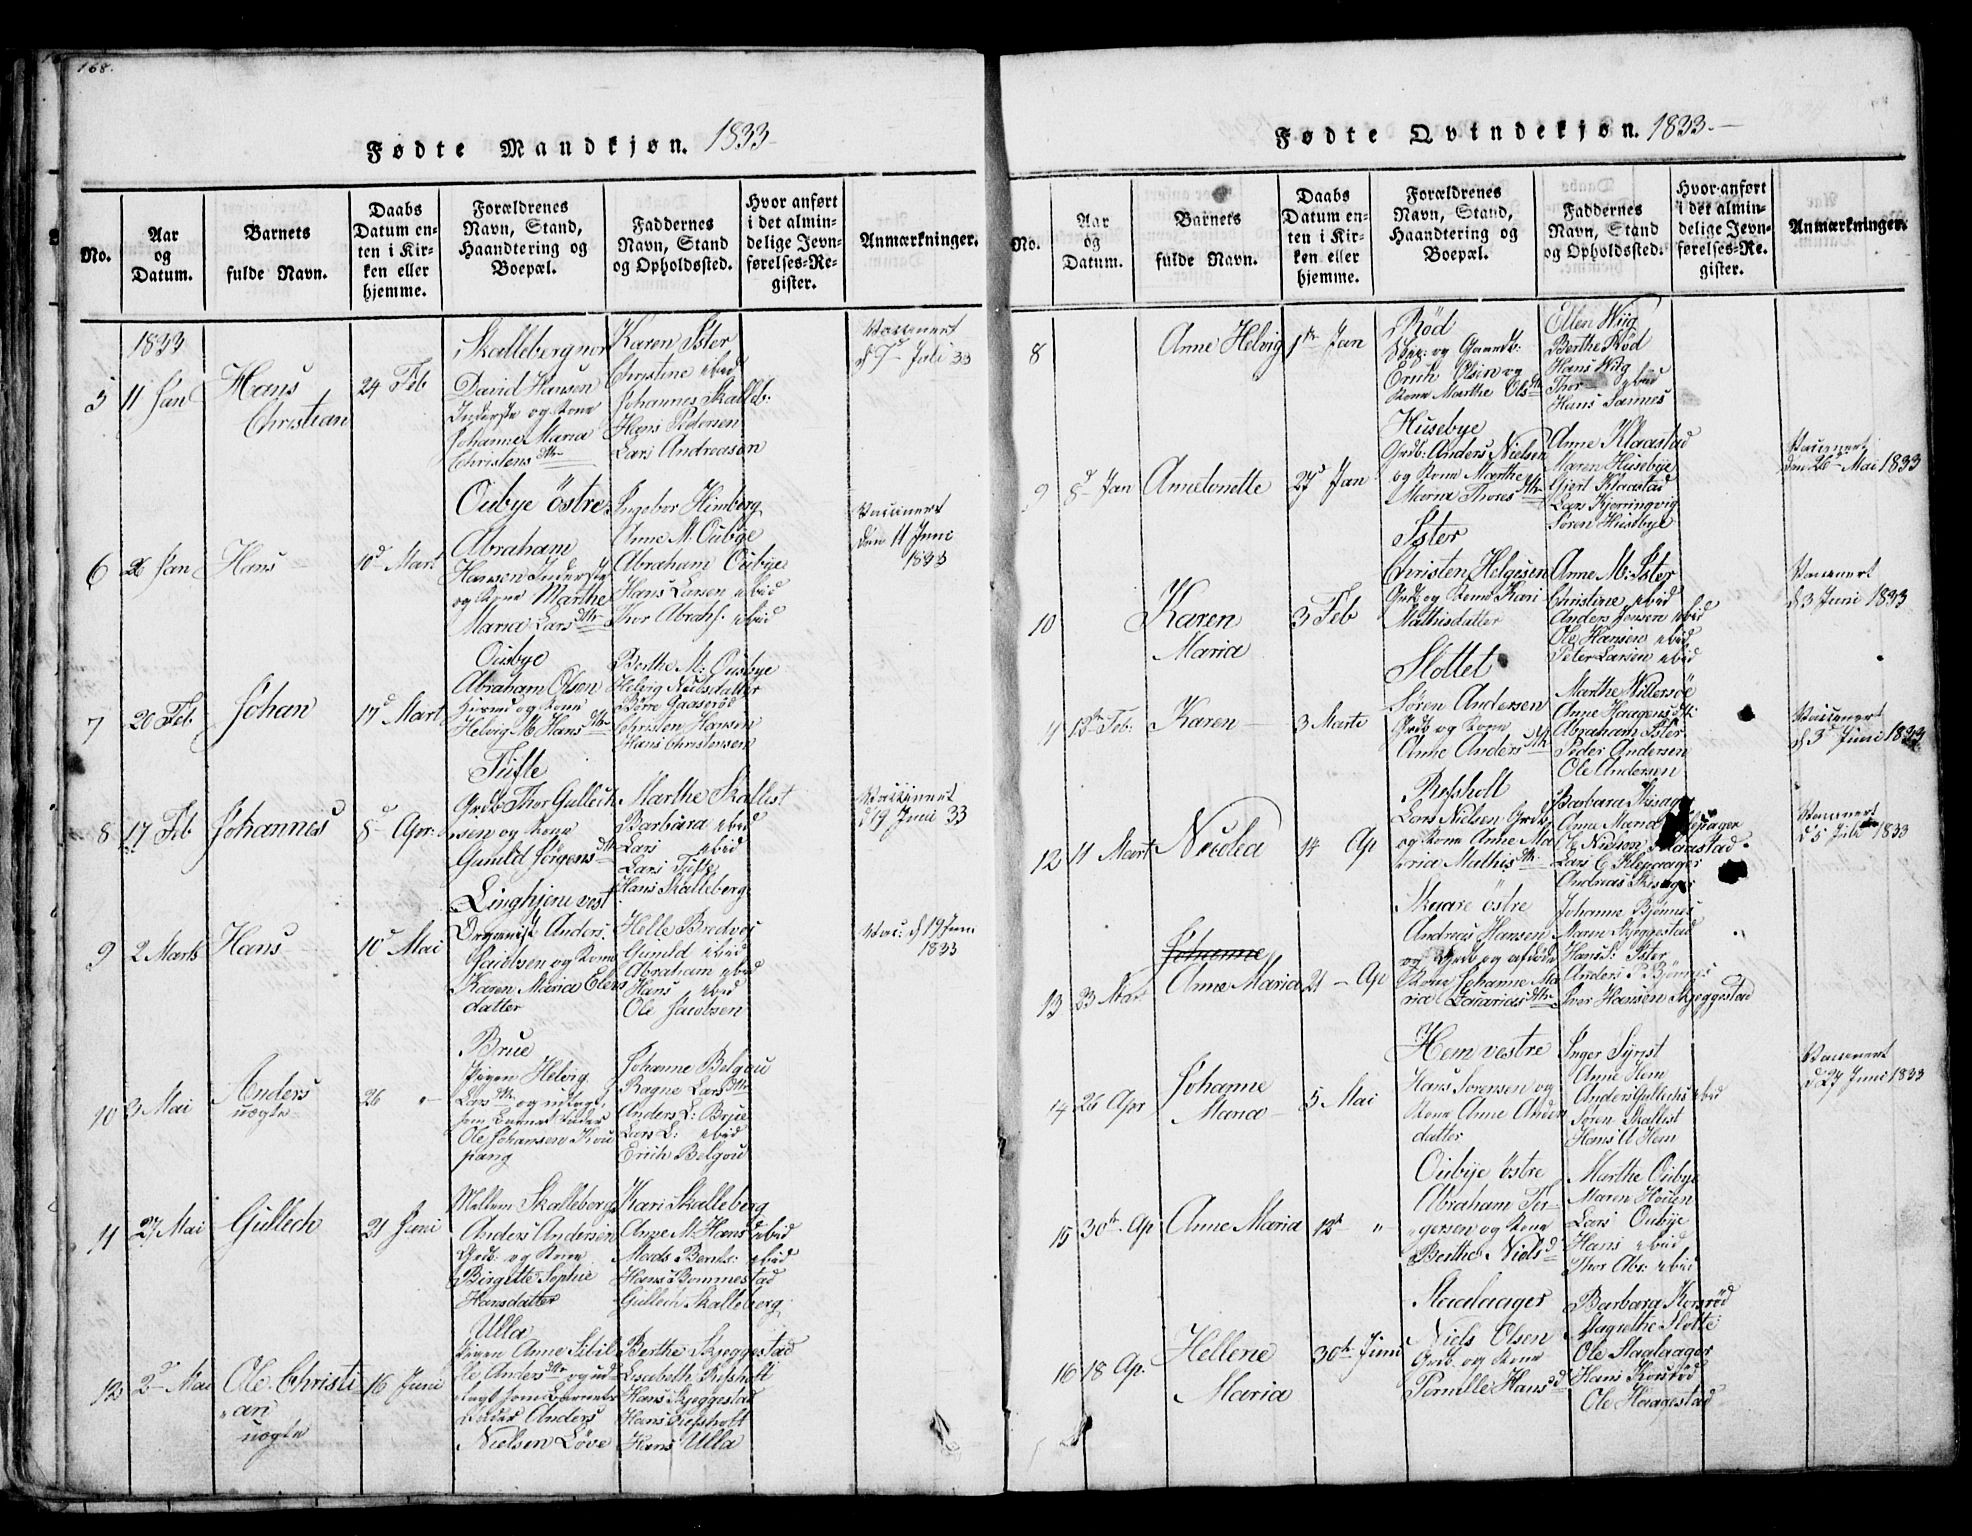 168.
Fødte Mandkjøn. 1833
No.
Aar
og
Datum.
Barnets
fulde Navn.
Daabs
Datum en-
ten i Kir-
ken eller
hjemme.
Forældrenes
Navn, Stand,
Haandtering og
Boepæl.
Faddernes
Navn, Stand
og Opholdssted.
Hvor anført
i det almin-
delige Jevn-
førelses-Re-
gister.
Anmærkninger.
1833
5
11 Jan
Hans
Christian
24 Feb
Skalleberg nor
David Hansen
Inderste og Kone
Johanne Maria
Christensdtr
Karen Ister
Christine ibid
Johannes Skalleb:
Hans Pedersen
Lars Andreasen
Vaccinert
d 7d Juli 33
6
26 Jan
Hans
10d Mart
Oubye östre
Abraham
Hansen Inderste
og Kone Marthe
Maria Larsdtr
Ingebor Himberg
Anne M. Oubye
Abraham Oubye
Hans Larsen ibid
Thor Abrahs. ibid
Vaccinert
den 11 Juni
1833
7
20 Feb.
Johan
17d Mart
Ousbye
Abraham Olsen
og Kone
Helvig M. Hansdtr
Berthe M: Ousbye
Helvig Nielsdatter
Börre Gaaserød
Christen Hansen
Hans Christensen
8
17 Feb
Johannes
8d Apr:
Tufte
Grdb: Thor Gullich
sen og Kone
Gunild Jörgensdtr
Marthe Skallest
Barbara ibid
Lars ibid
Lars Tufte
Hans Skalleberg
Vaccinert
d 19 Juni 33
9
2 Marts
Hans
10d Mai
Linghjem vest
Organist Anders
Jacobsen og Kone
Karen Maria Elers
datter
Helle Bredvei
Gunild ibid
Abraham ibid
Hans ibid
Ole Jacobsen
Vac: d 19 Juni
1833
10
3 Mai
Anders
uægte
26 "
Brue
Pigen Helvig
Larsdtr og udlagt
som Barnets Fader
Ole Johansen Kou
pang
Johanne Belgou
Ragne Larsdtr
Anders L: Brue
Lars L: ibid
Erich Belgou
11
27 Mai
Gullech
21 Juni
Mellem Skalleberg
Anders Andersen
Grdb. og Kone
Birgitte Sophie
Hansdatter
Kari Skalleberg
Anne M: Hans ibid
Mads Bents: ibid
Hans Bommestad
Gullech Skalleberg
12
2d Mai
Ole Christi
"an
uægte
16 Juni
Ulla
Pigen Anne Sibil
le Andersdtr og ud
lagt som Barnets
Fader Anders
Nielsen Löve
Berthe Skjeggestad
Lisabeth Refsholt
Hans Skjeggestad
Hans Refsholt
Hans Ulla
Fødte Qvindekjøn. 1833.
No.
Aar
og
Datum.
Barnets
fulde Navn.
Daabs
Datum en-
ten i Kir-
ken eller
hjemme.
Forældrenes
Navn, Stand,
Haandtering og
Boepæl.
Faddernes
Navn, Stand
og Opholdssted.
Hvor anført
i det almin-
delige Jevn-
førelses-Re-
gister.
Anmærkninger.
8
Anne Helvig
1ste Jan
Rød
Skpr: og Gaardb:
Erich Olsen og
Kone Marthe Olsdtr
Ellen Wiig
Berthe Rød
Hans Wiig
Thor ibid
Hans Sannes
9
8d Jan
Annetonette
27d Jan
Husebye
Grdb: Anders Nielsen
og Kone Marthe
Maria Thoresdtr
Anne Klaastad
Maren Husebye
Giert Klaastad
Lars Kjerringvig
Sören Husebye
Vaccinert
den 26 Mai 1833
10
Karen
Maria
3 Feb
Ister
Christen Helgesen
Grdb og Kone Kari
Mathisdatter
Anne M: Ister
Christine ibid
Anders Jensen ibid
Ole Hansen ibid
Peter Larsen ibid
Vaccinert
d 3 Juni 1833
11
13de Feb:
Karen
3 Marts
Slottet
Sören Andersen
Grdb og Kone
Anne Andersdtr
Marthe Nittersöe
Anne Haagensdtr
Abraham Ister
Peder Andersen
Ole Andersen
Vaccinert
d 3d Juni 1833
12
11 Mart
Nicolea
14 Ap
Refsholt
Lars Nielsen Grdb
og Kone Anne Ma
ria Mathisdtr
Barbara
Anne Maria Klepager
Ole Nielsen Klaastad
Lars C Klepaager
Andreas
Vaccinert
d 5 Juli 1833
13
23 Mar
Johanne
Anne Maria
21 - Ap
Skaare östre
Andreas Hansen
Grdb og afdöde
Kone Johanne Ma
ria Zacariasdtr
Johanne Bjönnes
Maren Skjeggestad
Hans S: Ister
Anders P Bjönnes
Iver Hansen Skjeggestad
"
14
26 Apr
Johanne
Maria
5 Mai
Hem vestre
Hans Sörensen og
Kone Anne Anders
datter
Inger Syrist
Anne Hem
Anders Gullichs ibid
Sören Skallist
Hans A Hem
Vaccinert
d 27 Juni 1833
15
30te Ap
Anne Maria
12te "
Oubye östre
Abraham Tor
"gersen og Kone
Berthe Nielsd
Marthe Oubye
Maren Houen
Lars Oubye
Hans ibid
Thor Abr: ibid
16
18 Ap.
Hellene
Maria
30te Juni
Staalaager
Niels Olsen
Grdb. og Kone
Pernille Hansd
Barbara Korsröd
Magrethe Slotte
Ole Staalaager
Hans Korsröd
Ole Haagestad